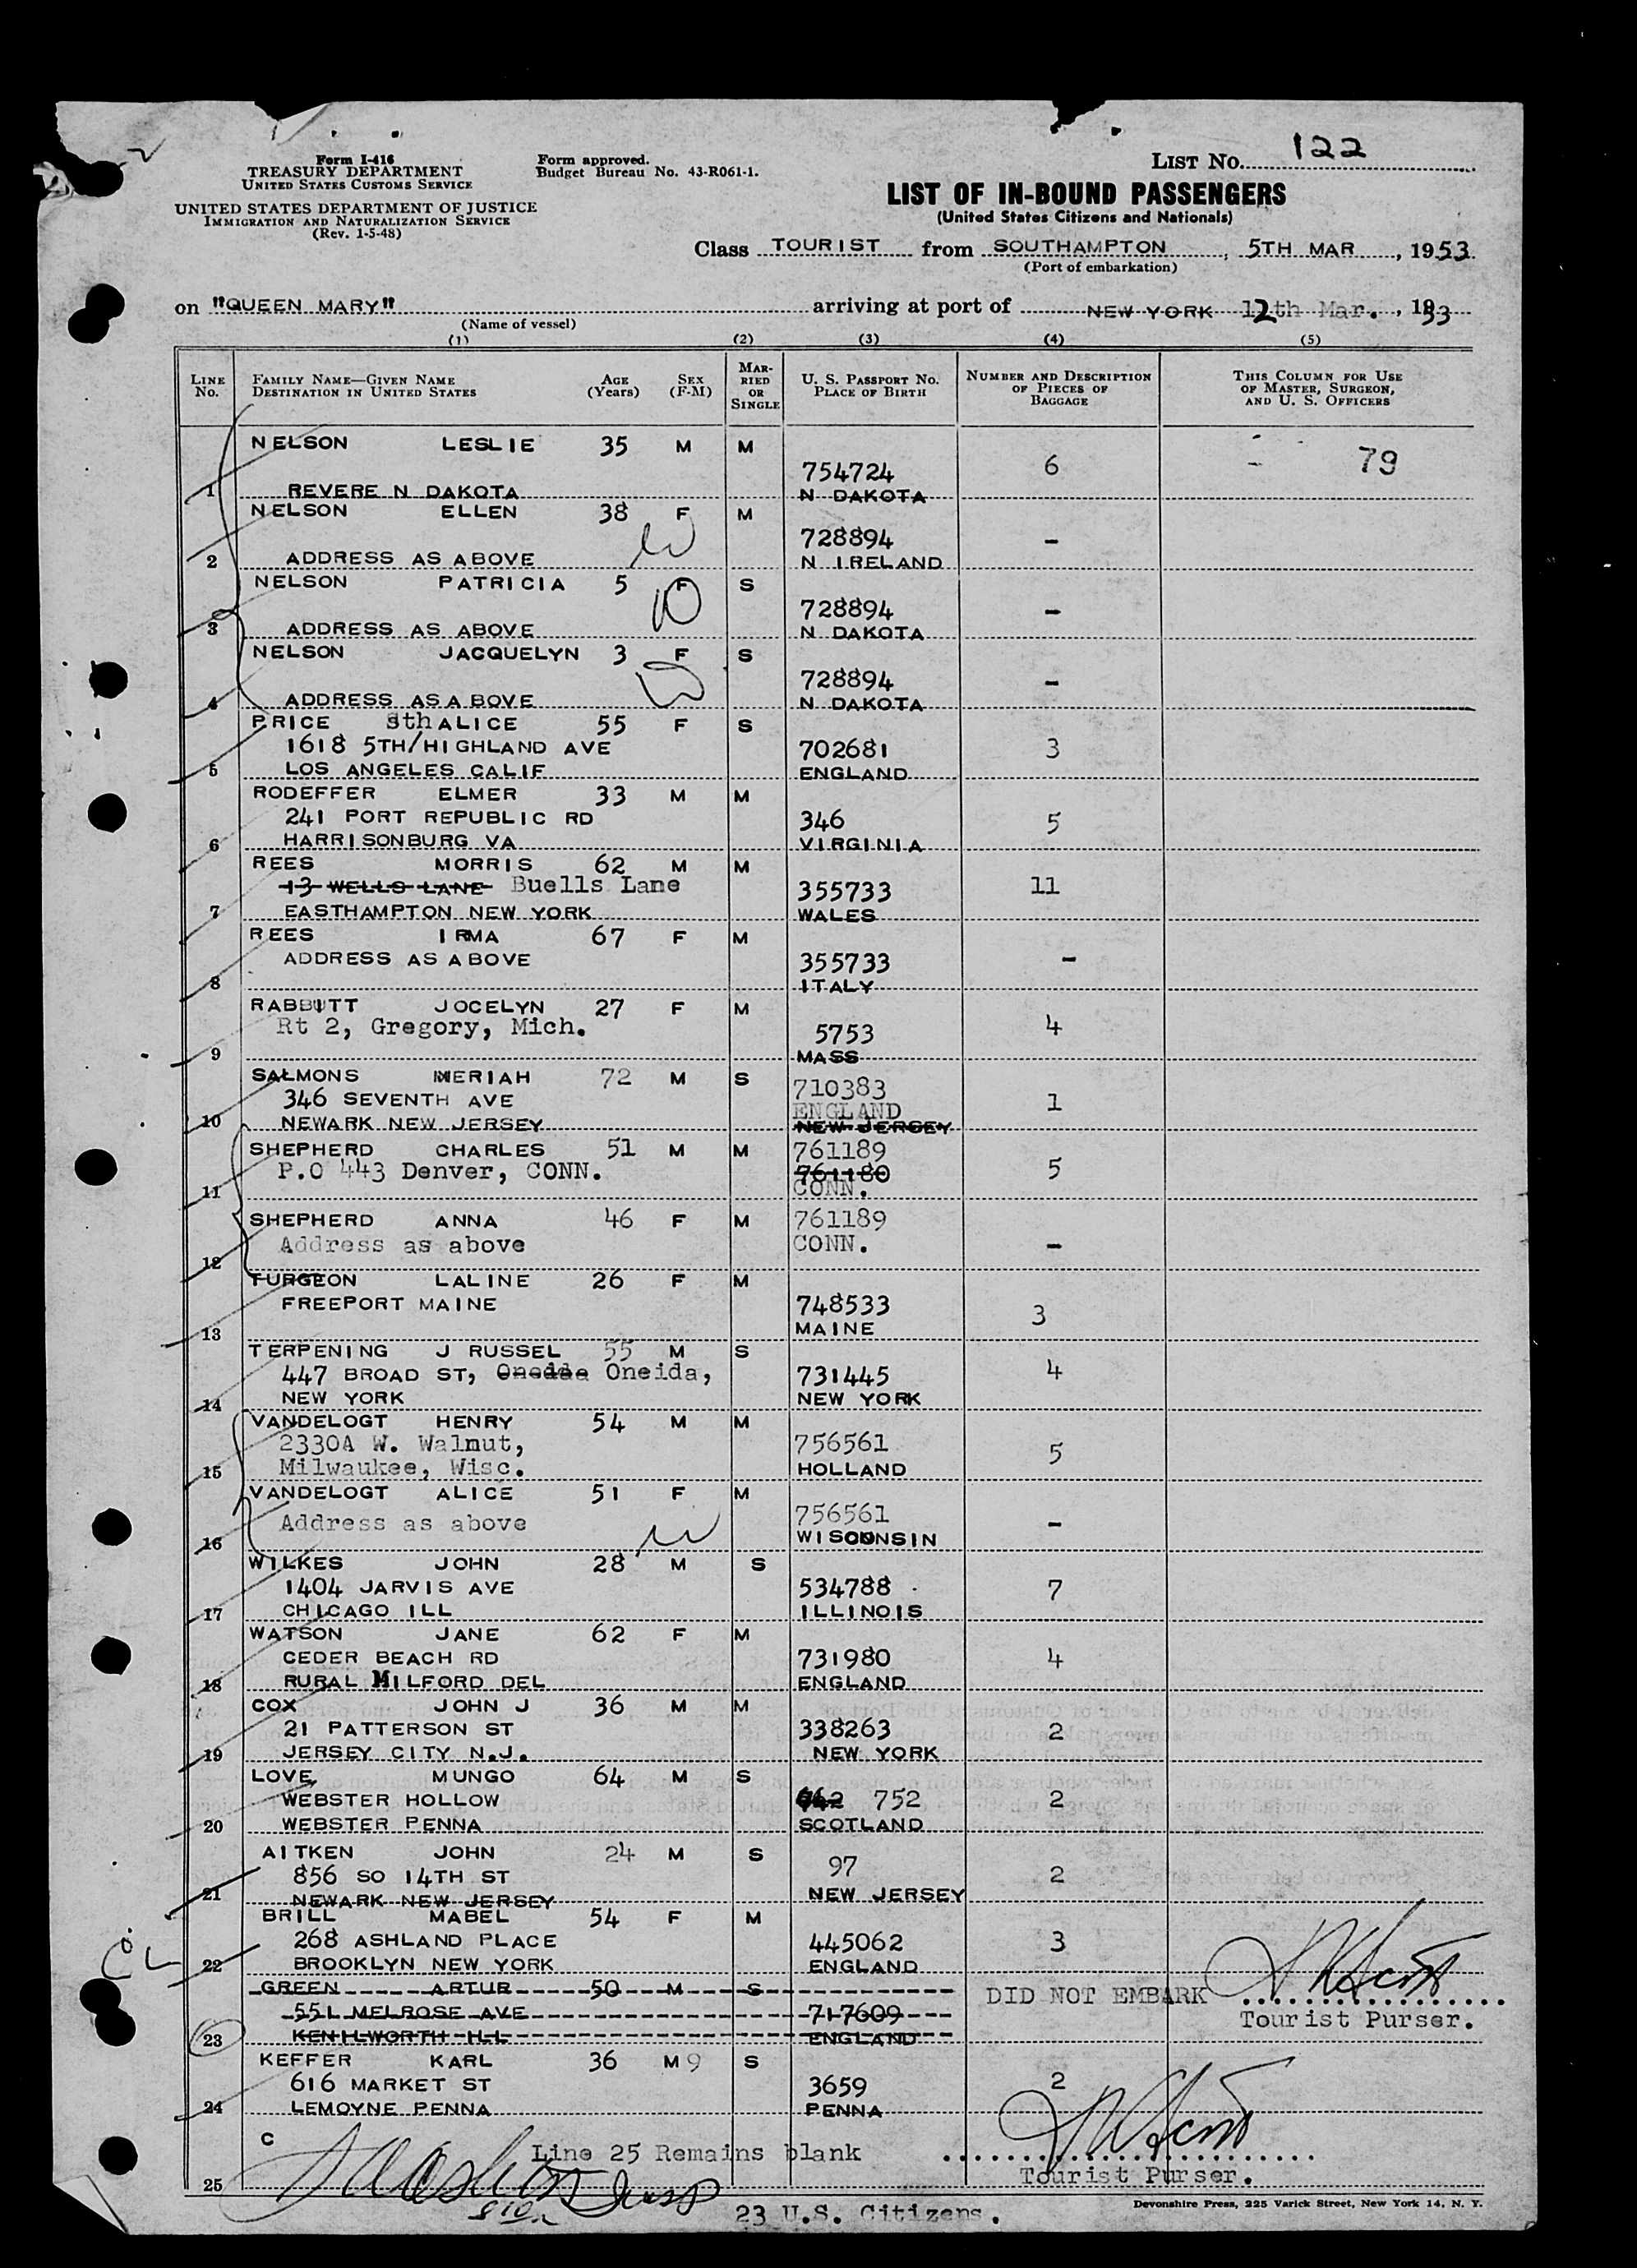 Form I-416
TREASURY DEPARTMENT
UNITED STATES CUSTOMS SERVICE
UNITED STATES DEPARTMENT OF JUSTICE
IMMIGRATION AND NATURALIZATION SERVICE
(Rev. 1-5-48)
Form approved.
Budget Bureau No. 43-R061-1.
LIST No. 122
LIST OF IN-BOUND PASSENGERS
(United States Citizens and Nationals)
Class TOURIST from SOUTHAMPTON, 5TH MAR, 1953
(Port of embarkation)
on "QUEEN MARY" arriving at port of NEW YORK 12th Mar., 1953
(Name of vessel)
(1) (2) (3) (4) (5)
LINE No. FAMILY NAME—GIVEN NAME DESTINATION IN UNITED STATES AGE (Years) SEX (F-M) MARRIED OR SINGLE U. S. PASSPORT No. PLACE OF BIRTH NUMBER AND DESCRIPTION OF PIECES OF BAGGAGE THIS COLUMN FOR USE OF MASTER, SURGEON, AND U. S. OFFICERS
NELSON LESLIE 35 M M
754724 6 - 79
1 REVERE N DAKOTA N DAKOTA
NELSON ELLEN 38 F M
728894 -
2 ADDRESS AS ABOVE N IRELAND
NELSON PATRICIA 5 F S
728894 -
3 ADDRESS AS ABOVE N DAKOTA
NELSON JACQUELYN 3 F S
728894 -
4 ADDRESS AS A BOVE N DAKOTA
PRICE 8th ALICE 55 F S
1618 5TH/HIGHLAND AVE 702681 3
5 LOS ANGELES CALIF ENGLAND
RODEFFER ELMER 33 M M
241 PORT REPUBLIC RD 346 5
6 HARRISONBURG VA VIRGINIA
REES MORRIS 62 M M
13 WELLS LANE Buells Lane 355733 11
7 EASTHAMPTON NEW YORK WALES
REES IRMA 67 F M
ADDRESS AS ABOVE 355733 -
8 ITALY
RABBITT JOCELYN 27 F M
Rt 2, Gregory, Mich. 5753 4
9 MASS
SALMONS MERIAH 72 M S 710383
346 SEVENTH AVE ENGLAND 1
10 NEWARK NEW JERSEY NEW JERSEY
SHEPHERD CHARLES 51 M M 761189
P.O 443 Denver, CONN. 761180 5
11 CONN.
SHEPHERD ANNA 46 F M 761189
Address as above CONN. -
12
TURGEON LALINE 26 F M
FREEPORT MAINE 748533 3
13 MAINE
TERPENING J RUSSEL 55 M S
447 BROAD ST, Oneida, 731445 4
14 NEW YORK NEW YORK
VANDELOGT HENRY 54 M M
2330A W. Walnut, 756561 5
15 Milwaukee, Wisc. HOLLAND
VANDELOGT ALICE 51 F M
Address as above 756561 -
16 WISCONSIN
WILKES JOHN 28 M S
1404 JARVIS AVE 534788 7
17 CHICAGO ILL ILLINOIS
WATSON JANE 62 F M
CEDER BEACH RD 731980 4
18 RURAL MILFORD DEL ENGLAND
COX JOHN J 36 M M
21 PATTERSON ST 338263 2
19 JERSEY CITY N.J. NEW YORK
LOVE MUNGO 64 M S
WEBSTER HOLLOW 752 2
20 WEBSTER PENNA SCOTLAND
AITKEN JOHN 24 M S
856 SO 14TH ST 97 2
21 NEWARK NEW JERSEY NEW JERSEY
BRILL MABEL 54 F M
268 ASHLAND PLACE 445062 3
22 BROOKLYN NEW YORK ENGLAND
GREEN ARTUR 50 M S DID NOT EMBARK
551 MELROSE AVE 717609 Tourist Purser.
23 KENILWORTH ILL ENGLAND
KEFFER KARL 36 M 9 S
616 MARKET ST 3659 2
24 LEMOYNE PENNA PENNA
C
Line 25 Remains blank
25 Tourist Purser.
23 U.S. Citizens.
Devonshire Press, 225 Varick Street, New York 14, N. Y.